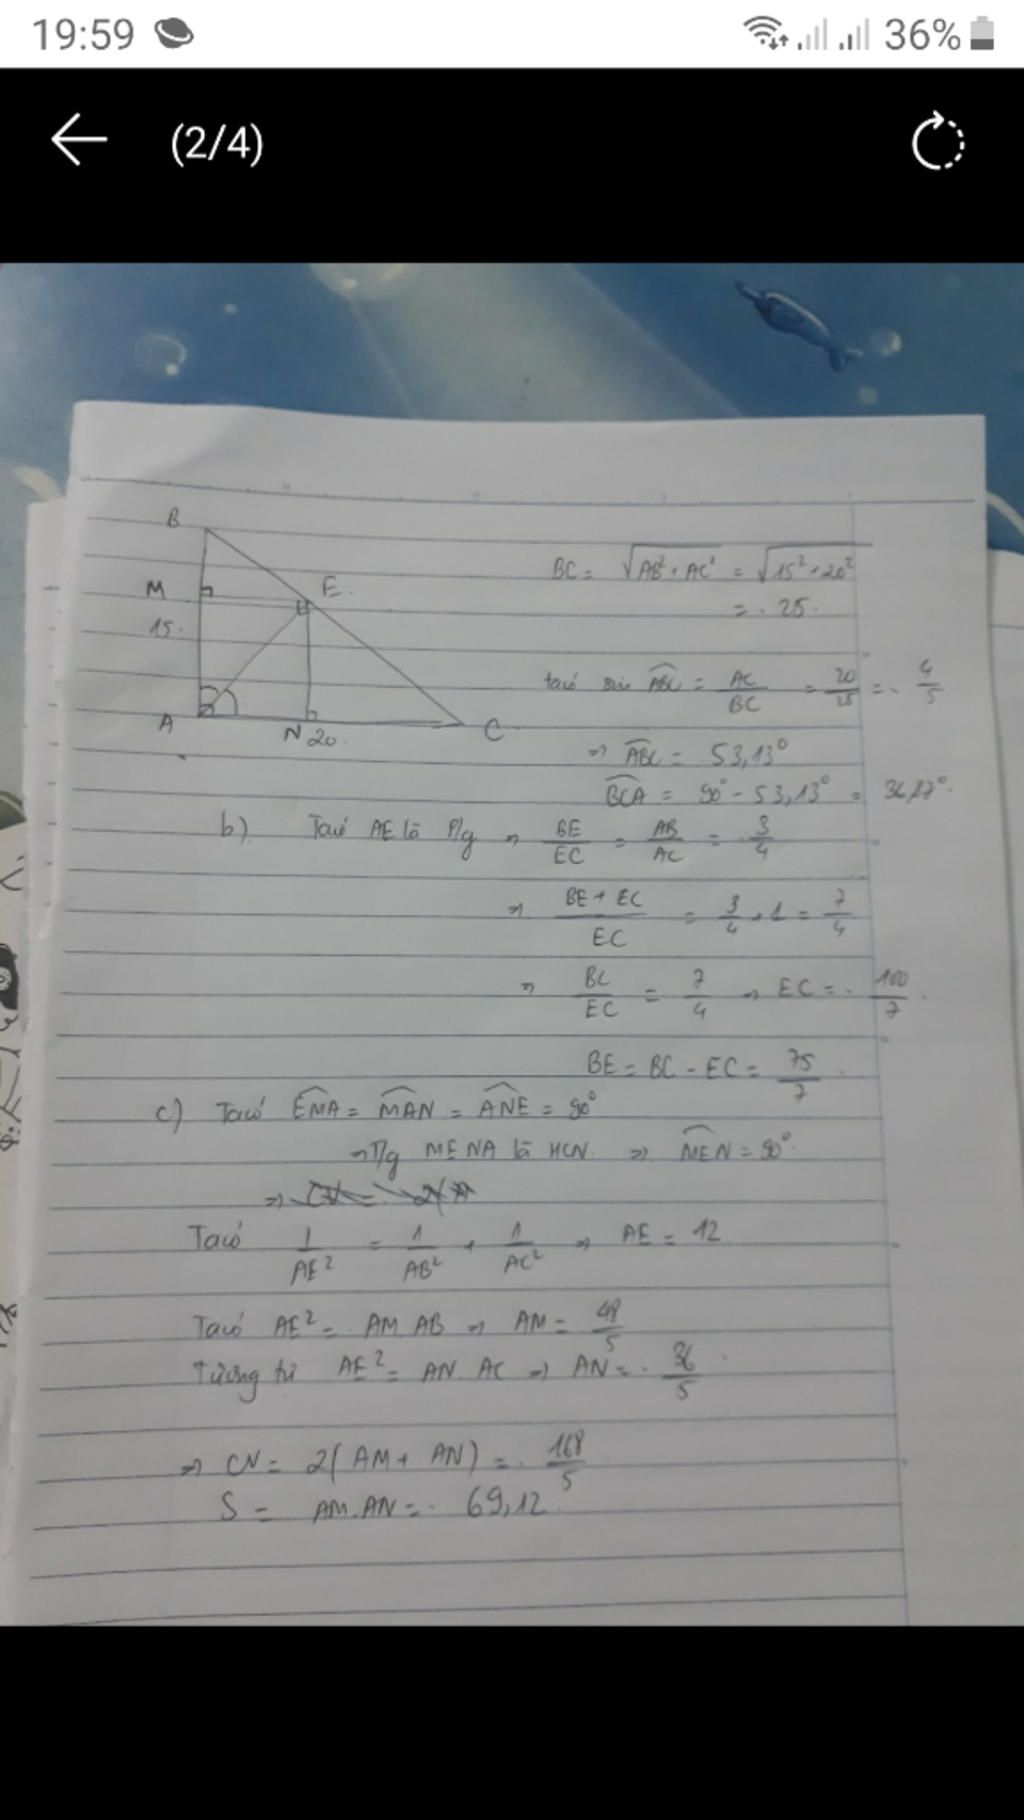 19:59
36%
(2/4)
B
M
E
15
A
N 20
C
BC = √AB² + AC² = √15² + 20²
= 25
ta có sin ABC = AC/BC = 20/25 = 4/5
⇒ ABC = 53,13°
BCA = 90° - 53,13° = 36,87°
b) Ta có AE là P/g ⇒ BE/EC = AB/AC = 3/4
⇒ BE + EC/EC = 3/4 + 1 = 7/4
⇒ BC/EC = 7/4 ⇒ EC = 100/7
BE = BC - EC = 75/7
c) Ta có EMA = MAN = ANE = 90°
⇒ T/g MENA là HCN ⇒ MEN = 90°
⇒
Ta có 1/AE² = 1/AB² + 1/AC² ⇒ AE = 12
Ta có AE² = AM.AB ⇒ AM = 48/5
Tương tự AE² = AN.AC ⇒ AN = 36/5
⇒ CV = 2(AM + AN) = 168/5
S = AM.AN = 69,12